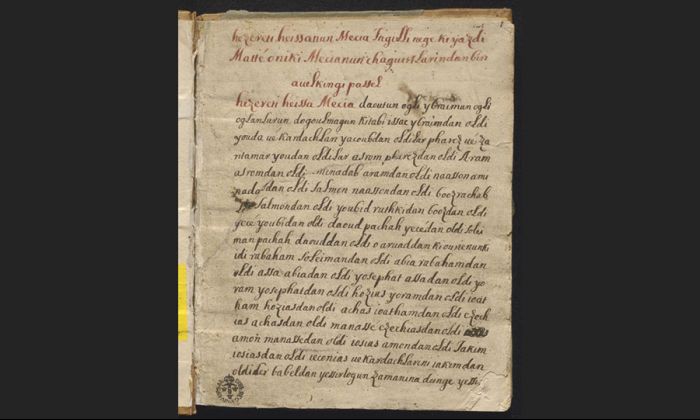 hezeren heissanun Mecia Ingilli nege ki yazdi
Matté oniki Mecianun chaguirtlarindan bin
auelkingi passel
hezeren heissa Mecia daousun ogli ybraiman ogli
oglanlarun dogoulmagun kitabi issac ybraimdan oldi
youda ue kardachlari yacoubdan oldilar pharez ue za
ra tamar youdan oldilar asrom pharezdan oldi Aram
asromdan oldi minadab aramdan oldi naasson ami
nadabdan oldi salmon naassondan oldi booz rachab
salmondan oldi youbid ruthkidan boozdan oldi
yece youbidan oldi daoud pachah yeceïdan oldi solei
man pachah daouddan oldi o aruaddan ki ourienunki
idi rabaham soleimandan oldi abia rabahamdan
oldi assa abiadan oldi yosephat assadan oldi yo
ram yosephatdan oldi hozias yoramdan oldi ioat
ham hoziasdan oldi achas ioathamdan oldi ezech
ias achasdan oldi manasse ezechiasdan oldi
amon manassedan oldi iosias amondan oldi iakim
iosiasdan oldi ieconias ue kardachlarini iakimdan
oldiler babeldan yessirlogun zamanina deinge yessi